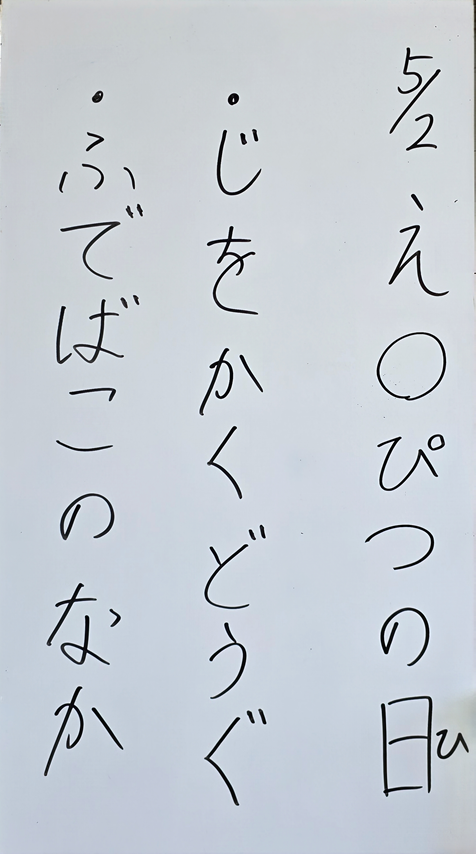 5/2 え〇ぴつの日ひ
・じをかくどうぐ
・ふでばこのなか